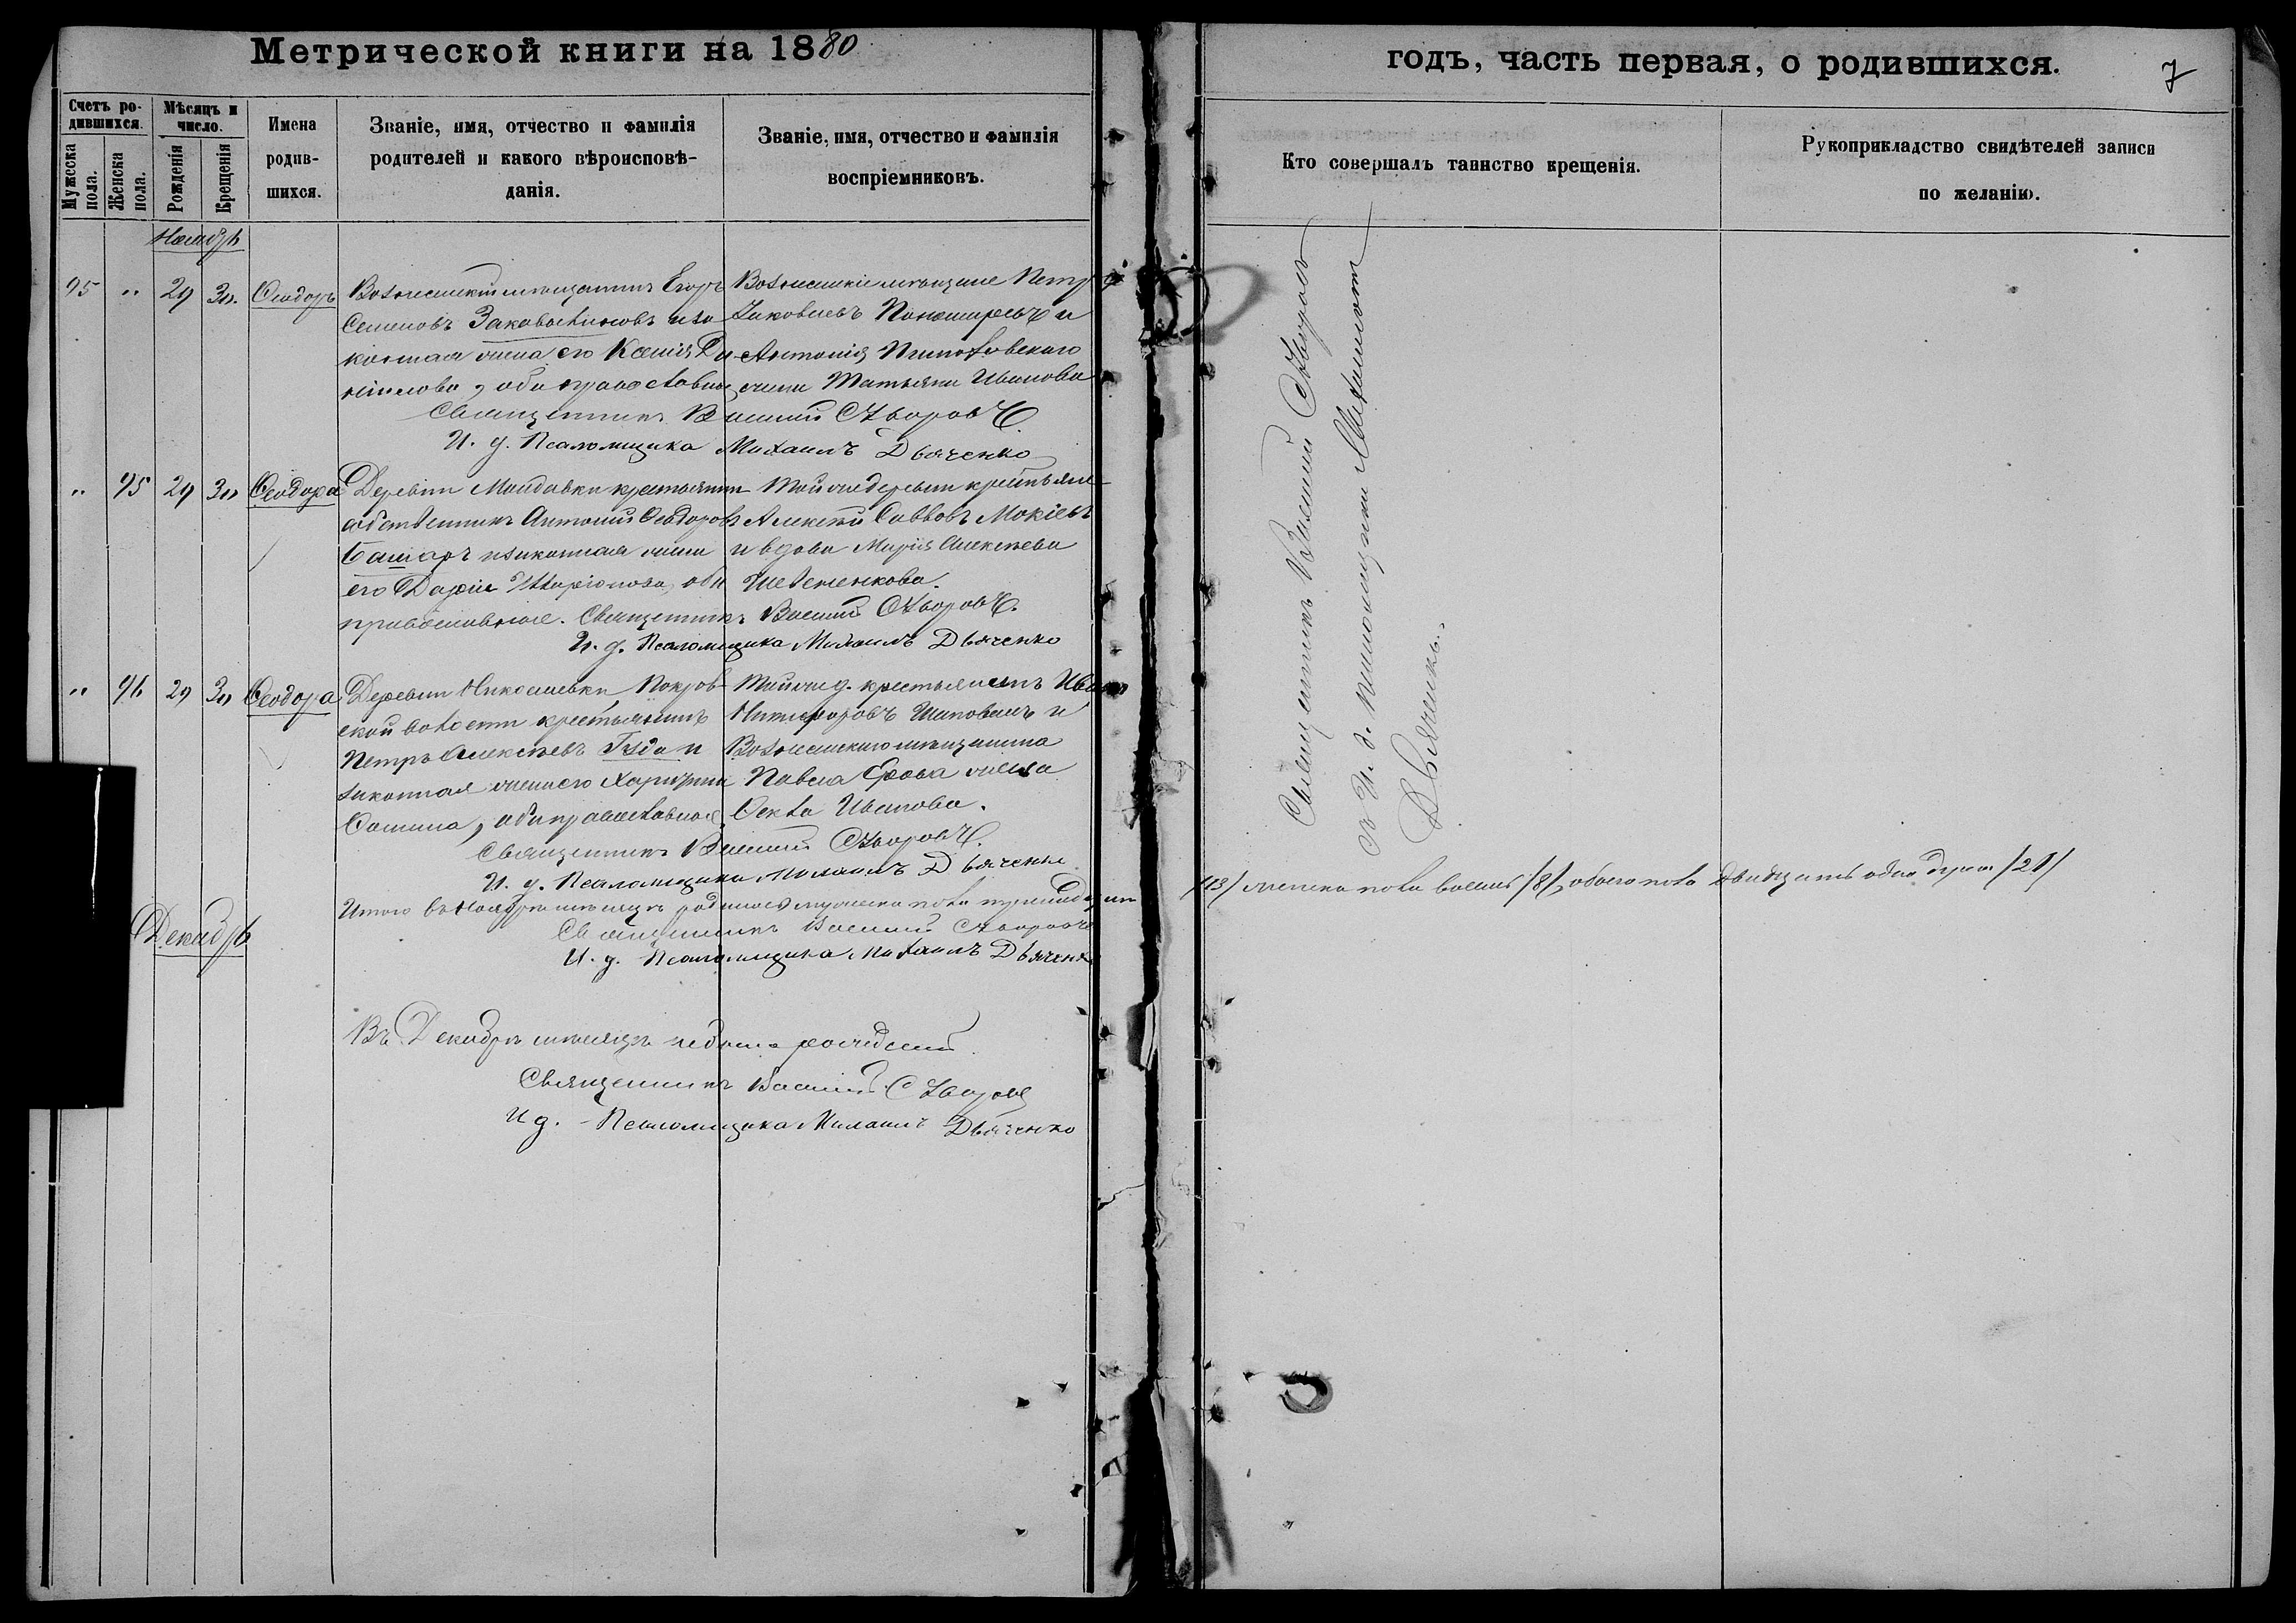 Метрической книги на 1880
годъ, часть первая, о родившихся.
7
Счетъ родившихся.
Мужеска пола.
Женска пола.
Мѣсяцъ и число.
Рожденія
Крещенія
Имена родившихся.
Званіе, имя, отчество и фамилія родителей и какого вѣроисповѣданія.
Званіе, имя, отчество и фамилія воспріемниковъ.
Кто совершалъ таинство крещенія.
Рукоприкладство свидѣтелей записи по желанію.
Ноябрь
95 " 29 30. Ѳеодоръ
Вознесенскій мѣщанинъ Егоръ
Семеновъ и за
конная жена его Ксенія Да
ніилова, оба православные
Вознесенскіе мѣщане Петръ
Яковлевъ и
Антонія
жена Татьяна Иванова
Священникъ Василій
И. д. Псаломщика Михаилъ Дьяченко
" 95 29 30 Ѳеодора
Деревни Молдавки крестьянинъ
собственникъ Антоній Ѳеодоровъ
Башаръ и законная жена
его Дарія Илларіонова, оба
православные.
Той же деревни крестьяне
Алексѣй Саввовъ
и вдова Марія Алексѣева
Священникъ Василій
И. д. Псаломщика Михаилъ Дьяченко
" 96 29 30 Ѳеодора
Деревни Николаевки Покров
ской волости крестьянинъ
Петръ Алексѣевъ и
законная жена его Харитина
Ѳомина, оба православные.
Той же д. крестьянинъ Иванъ
Никифоровъ Шаповалъ и
Вознесенскаго мѣщанина
Павла жена
Ѳекла Иванова.
Священникъ Василій
И. д. Псаломщика Михаилъ Дьяченко
Итого въ Ноябрѣ мѣсяцѣ родилось мужеска пола тринадцать
/13/ женска пола восемь /8/, обоего пола двадцать одна душа /21/
Священникъ Василій
И. д. Псаломщика Михаилъ Дьяченко
Декабрь
Въ Декабрѣ мѣсяцѣ не было рожденій
Священникъ Василій
И д. Псаломщика Михаилъ Дьяченко
Священникъ Василій
съ И. д. псаломщика Михаиломъ
Дьяченко.